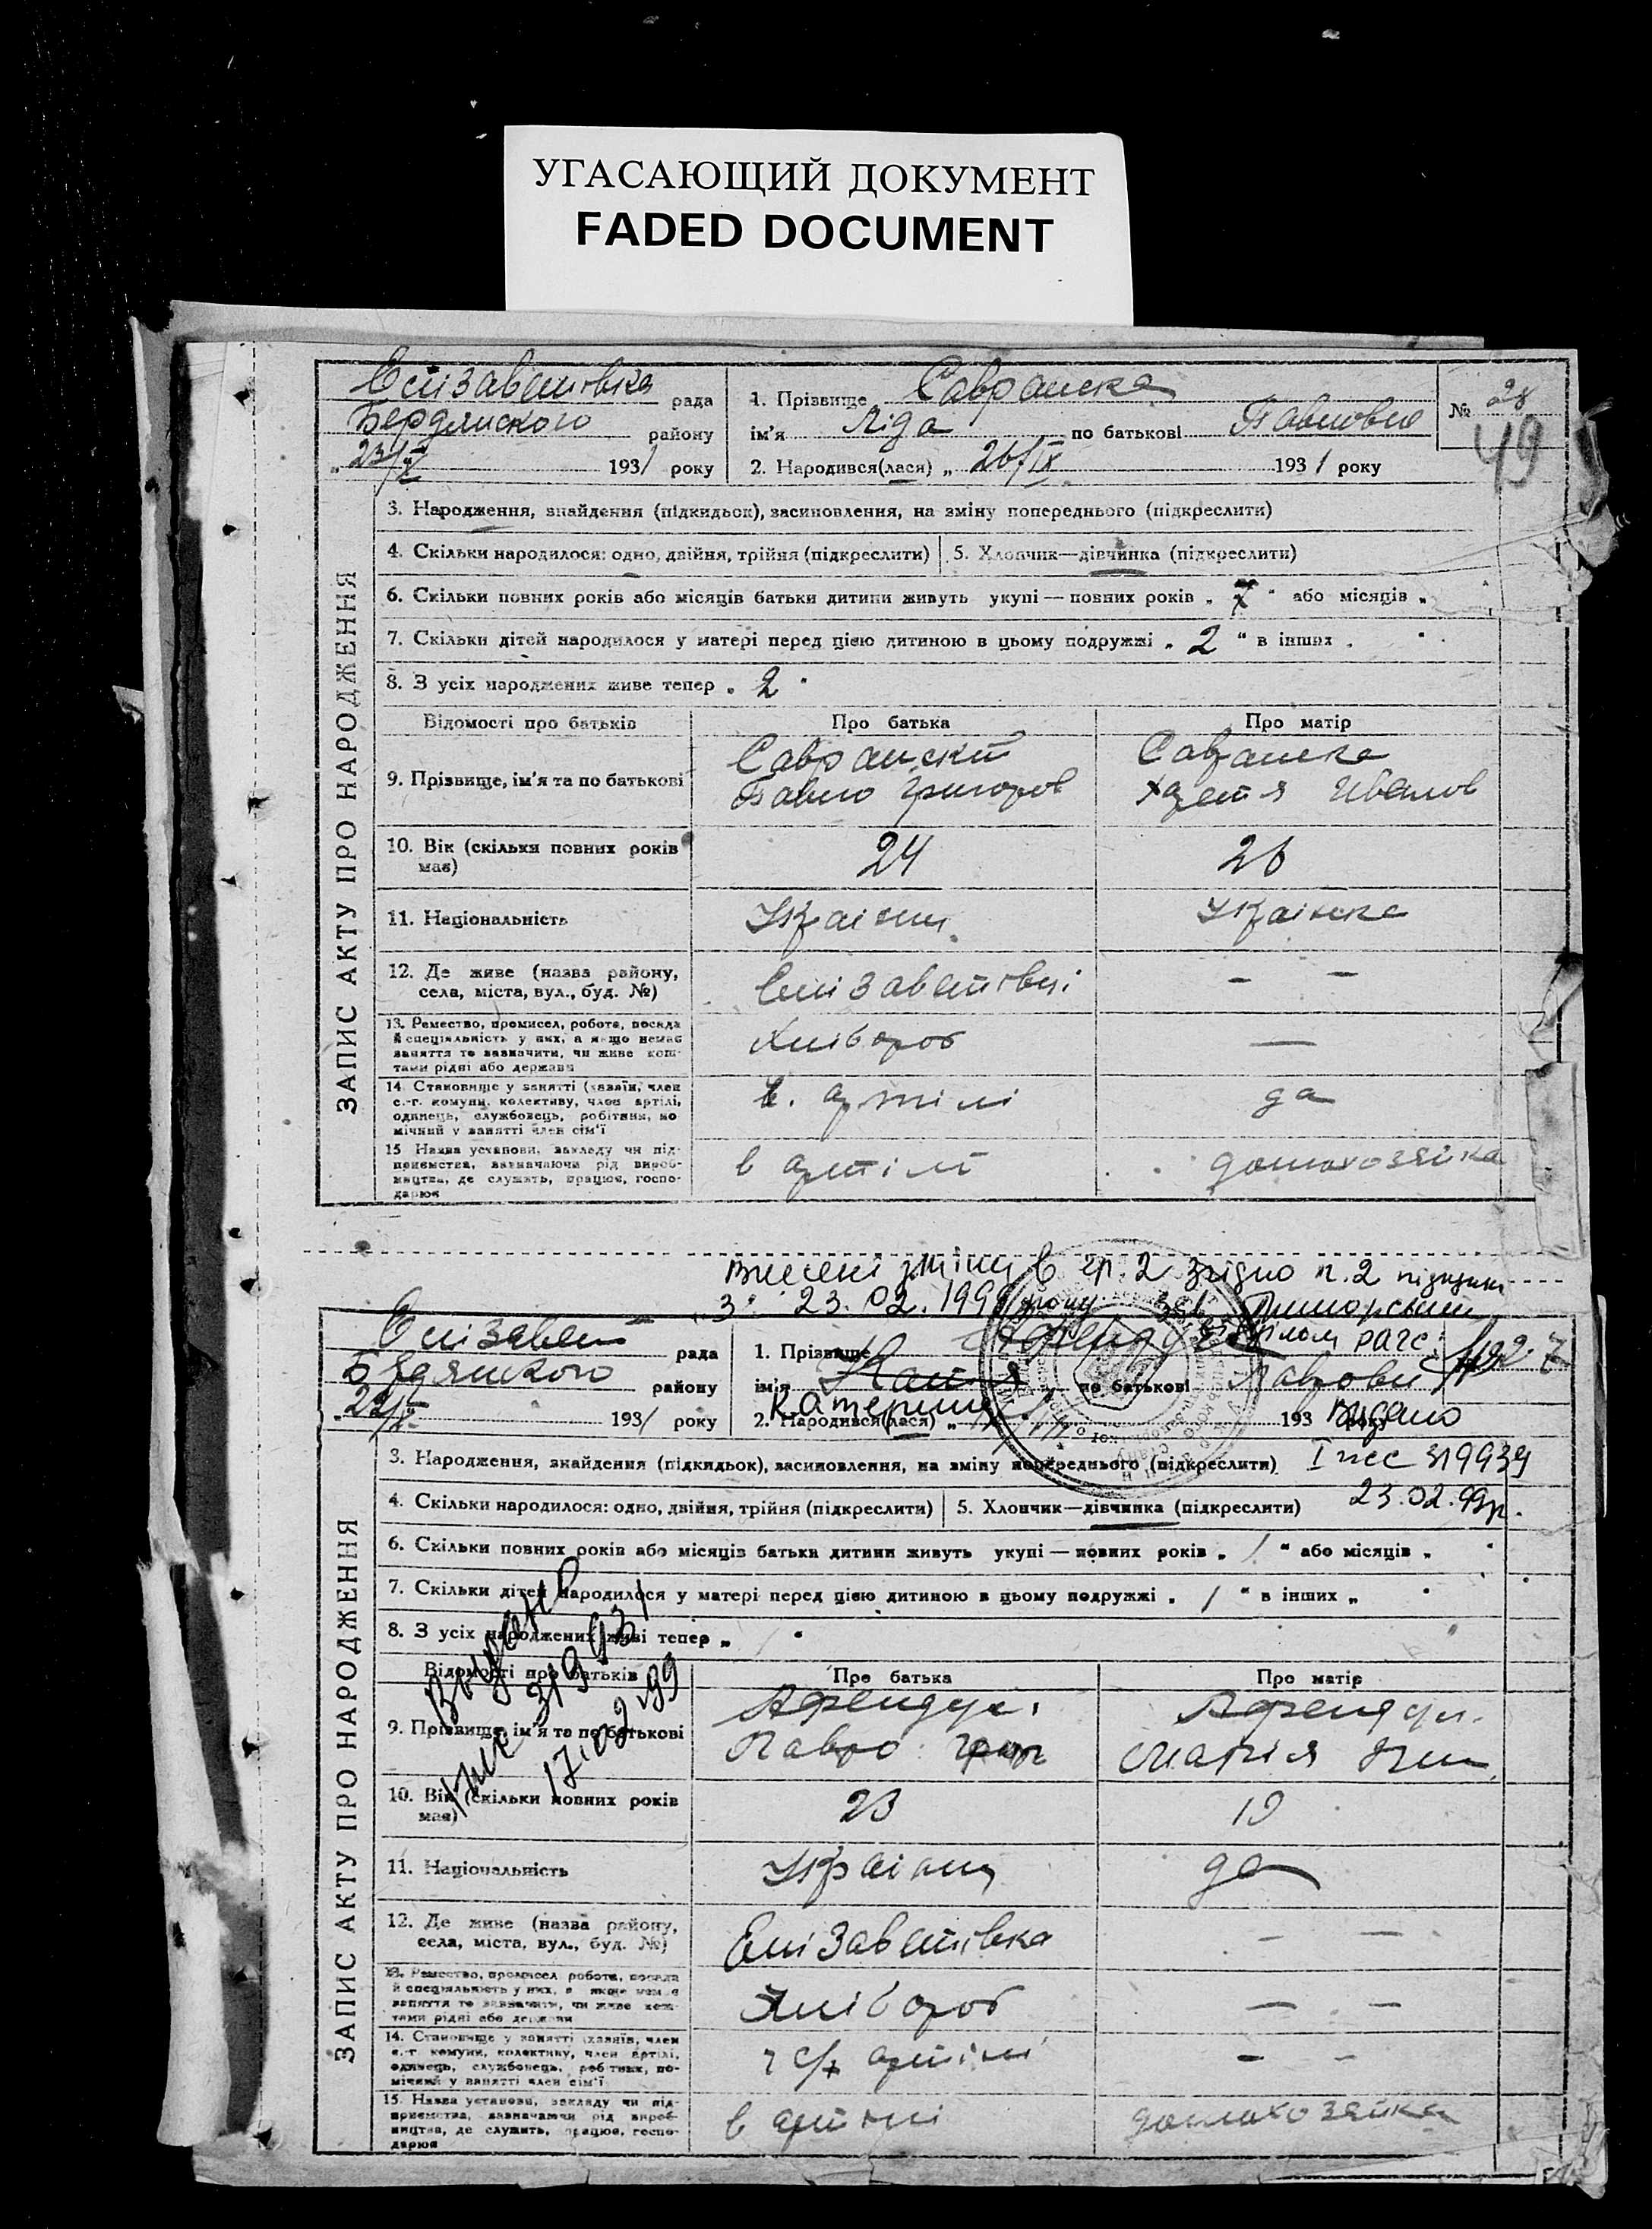 УГАСАЮЩИЙ ДОКУМЕНТ
FADED DOCUMENT
ЗАПИС АКТУ ПРО НАРОДЖЕННЯ
Єлізаветівка рада
Бердянського району
„23/X 1931 року
1. Прізвище Савранска
ім'я Ліда по батькові Павловна
2. Народився(лася) „ 26/IX 1931 року
№ 28
49
3. Народження, знайдення (підкидьок), засиновлення, на зміну попереднього (підкреслити)
4. Скільки народилося: одно, двійня, трійня (підкреслити) 5. Хлопчик—дівчинка (підкреслити)
6. Скільки повних років або місяців батьки дитини живуть укупі — повних років „ 7 " або місяців „
7. Скільки дітей народилося у матері перед цією дитиною в цьому подружжі „ 2 " в інших „
8. З усіх народжених живе тепер „ 2 "
Відомості про батьків Про батька Про матір
9. Прізвище, ім'я та по батькові
Савранский Павло Григоров
Савранска Иванов
10. Вік (скільки повних років має) 24 26
11. Національність Україн. Українка
12. Де живе (назва району, села, міста, вул., буд. №) Єлізаветівці — —
13. Ремество, промисел, робота, посада й спеціяльність у них, а якщо немає заняття то зазначити, чи живе коштами рідні або держави Хлібороб —
14. Становище у занятті (хазяїн, член с.-г. комуни, колективу, член артілі, одинець, службовець, робітник, помічний у занятті член сім'ї ч. артілі да
15 Назва установи, закладу чи підприємства, зазначаючи рід виробництва, де служить, працює, господарює в артілі домахозяйка
Внесені зміни в гр. 2 згідно п. 2
з 23.02.1999 року зав. Приморським
відділом рагс
ЗАПИС АКТУ ПРО НАРОДЖЕННЯ
Єлізавет рада
Бердянского району
1931 року
1. Прізвище
ім'я Катя по батькові Павровн
Катерина
2. Народився(лася) „ 193 року
видано
319939
23.02.99р.
3. Народження, знайдення (підкидьок), засиновлення, на зміну попереднього (підкреслити)
4. Скільки народилося: одно, двійня, трійня (підкреслити) 5. Хлопчик—дівчинка (підкреслити)
6. Скільки повних років або місяців батьки дитини живуть укупі — повних років „ 1 " або місяців „
7. Скільки дітей народилося у матері перед цією дитиною в цьому подружжі „ 1 " в інших „
8. З усіх народжених живі тепер „
Видано
319931
17.02.99
Відомості про батьків Про батька Про матір
9. Прізвище, ім'я та по батькові
Афендул.
Павро
Афендул.
Марія
10. Вік (скільки повних років має) 23 19
11. Національність Україн да
12. Де живе (назва району, села, міста, вул., буд. №) Єлізаветівка — —
13. Ремество, промисел, робота, посада й спеціяльність у них, а якщо немає заняття то зазначити, чи живе коштами рідні або держави Хлібороб — —
14. Становище у занятті (хазяїн, член с.-г. комуни, колективу, член артілі, одинець, службовець, робітник, помічний у занятті член сім'ї ч с/г артілі — —
15. Назва установи, закладу чи підприємства, зазначаючи рід виробництва, де служить, працює, господарює в артілі домахозяйка